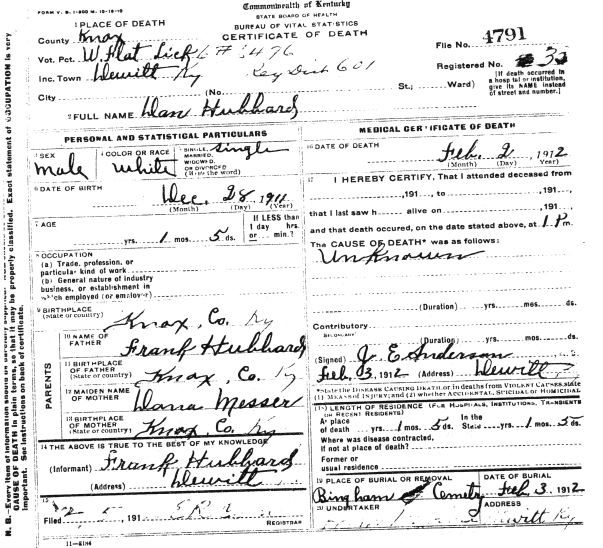 Commonwealth of Kentucky
FORM V. S. 1-200 M. 10-16-10
STATE BOARD OF HEALTH
BUREAU OF VITAL STATISTICS
CERTIFICATE OF DEATH
1 PLACE OF DEATH
County Knox
Vot. Pct. W. Flat Lick
Inc. Town Dewitt Ky Reg Dist 601
City
(No. St.; Ward)
File No. 4791
Registered No. 3
[If death occurred in a hospital or institution, give its NAME instead of street and number.]
2 FULL NAME Dan Hubbard
PERSONAL AND STATISTICAL PARTICULARS
3 SEX male
4 COLOR OR RACE White
5 SINGLE, MARRIED, WIDOWED OR DIVORCED (Write the word) Single
6 DATE OF BIRTH Dec, 28, 1911
(Month) (Day) (Year)
7 AGE
yrs. 1 mos. 5 ds.
If LESS than 1 day hrs. or min.?
8 OCCUPATION
(a) Trade, profession, or particular kind of work
(b) General nature of industry business, or establishment in which employed (or employer)
9 BIRTHPLACE (State or country) Knox, Co. Ky
PARENTS
10 NAME OF FATHER Frank Hubbard
11 BIRTHPLACE OF FATHER (State or country) Knox, Co. Ky
12 MAIDEN NAME OF MOTHER Messer
13 BIRTHPLACE OF MOTHER (State or country) Knox, Co. Ky
14 THE ABOVE IS TRUE TO THE BEST OF MY KNOWLEDGE
(Informant) Frank Hubbard
(Address) Dewitt
15
Filed 191
REGISTRAR
11—6184
MEDICAL CERTIFICATE OF DEATH
16 DATE OF DEATH Feb. 2, 1912
(Month) (Day) (Year)
17 I HEREBY CERTIFY, That I attended deceased from
, 191 , to , 191 ,
that I last saw h alive on , 191 ,
and that death occured, on the date stated above, at 1 P m.
The CAUSE OF DEATH* was as follows:
Unknown
(Duration) yrs. mos. ds.
Contributory
(Duration) yrs. mos. ds.
(Signed) J E Anderson
Feb, 3, 1912 (Address) Dewitt
*State the DISEASE CAUSING DEATH, or, in deaths from VIOLENT CAUSES, state (1) MEANS OF INJURY; and (2) whether ACCIDENTAL, SUICIDAL or HOMICIDAL
18 LENGTH OF RESIDENCE (FOR HOSPITALS, INSTITUTIONS, TRANSIENTS OR RECENT RESIDENTS)
At place of death yrs. 1 mos. 5 ds. In the State yrs. 1 mos. 5 ds.
Where was disease contracted, If not at place of death?
Former or usual residence
19 PLACE OF BURIAL OR REMOVAL Bingham Cemetry
DATE OF BURIAL Feb, 3, 1912
20 UNDERTAKER
ADDRESS
N. B.—Every item of information
CAUSE OF DEATH in plain terms, so that it may be properly classified. Exact statement of OCCUPATION is very
important. See instructions on back of certificate.